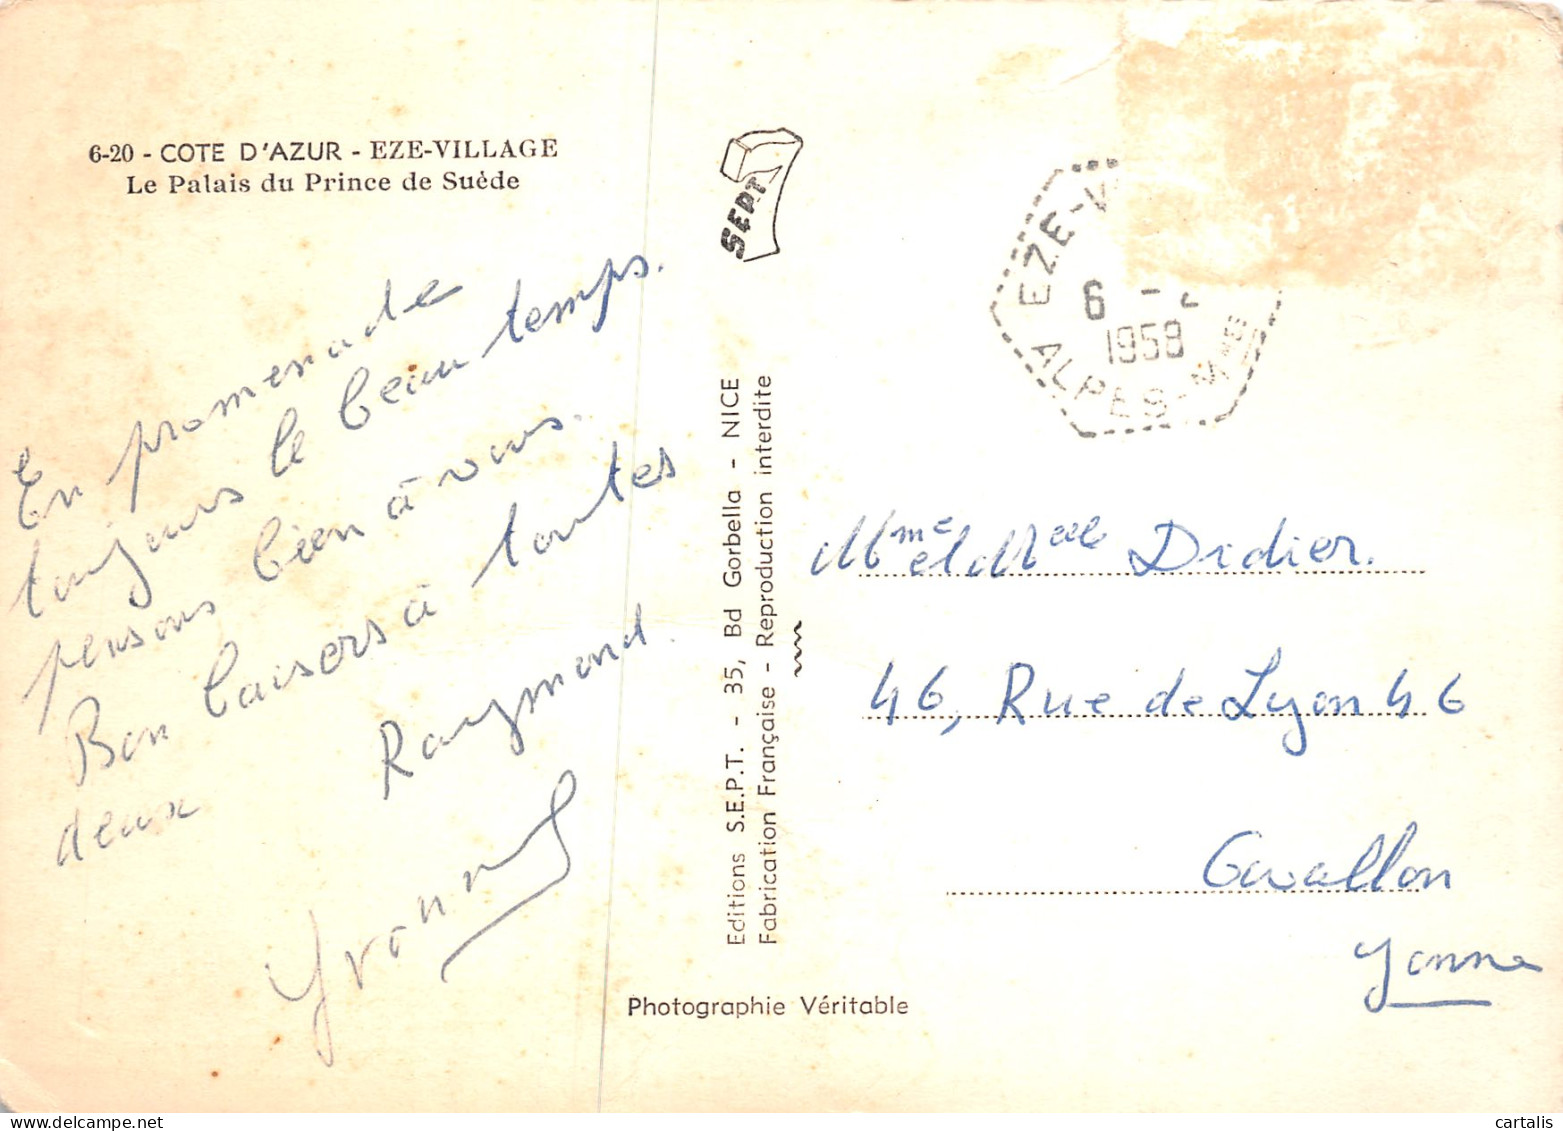 6-20 - COTE D'AZUR - EZE-VILLAGE
Le Palais du Prince de Suède
En promenade
toujours le beau temps.
pensons bien à vous.
Bon baisers à toutes
deux
Raymond.
Yvonne
SEPT
Editions S.E.P.T. - 35, Bd Gorbella - NICE
Fabrication Française - Reproduction interdite
Photographie Véritable
EZE-V
6 -
1958
ALPES-Mmes
Mme et Melle Didier.
46, Rue de Lyon 46
Avallon
Yonne
cartalis